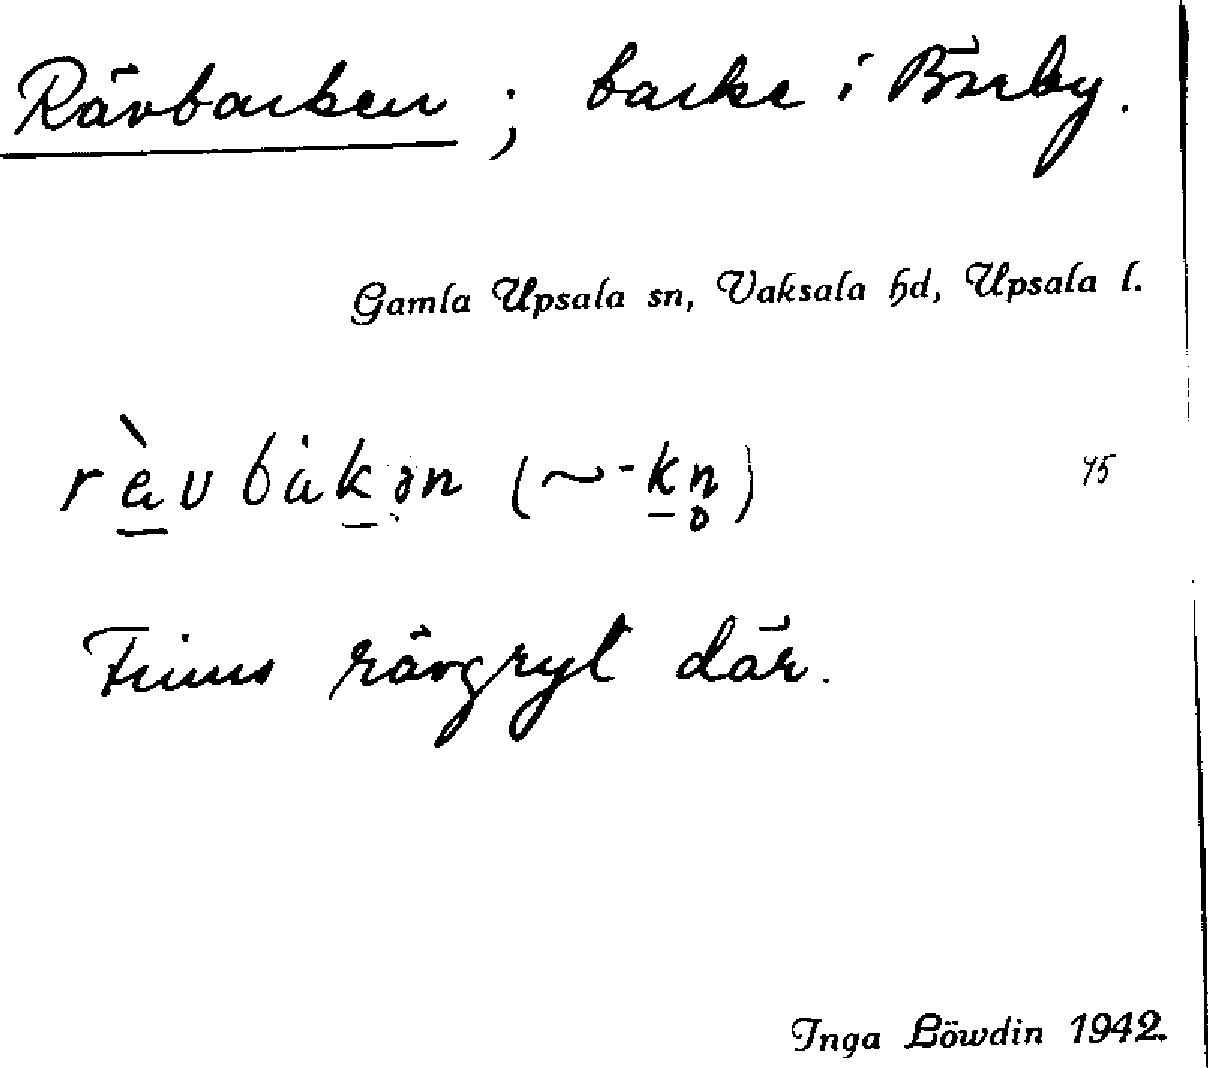 Rävbacken ; backe i Bärby.
Gamla Upsala sn, Vaksala hd, Upsala l.
(~-kn̥) 45
Finns rävgryt där.
Inga Löwdin 1942.